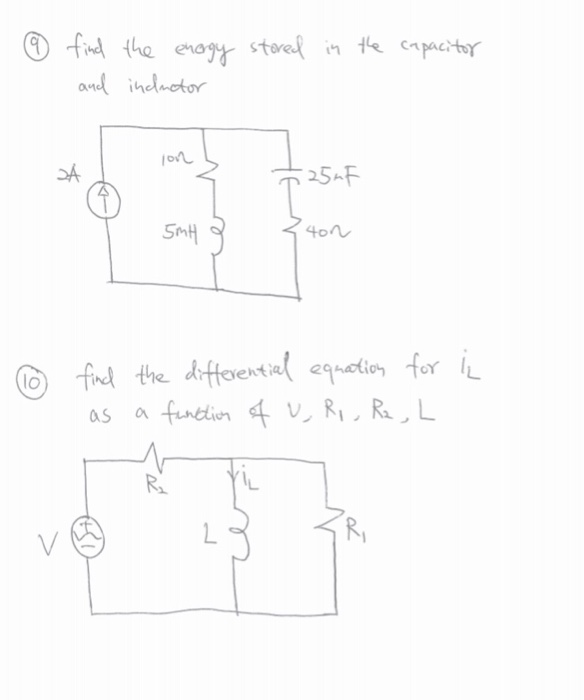 ⑨ find the energy stored in the capacitor
and inductor
2A
10Ω
25nF
5mH
40Ω
⑩ find the differential equation for iL
as a function of V, R1, R2, L
R2
iL
V
L
R1